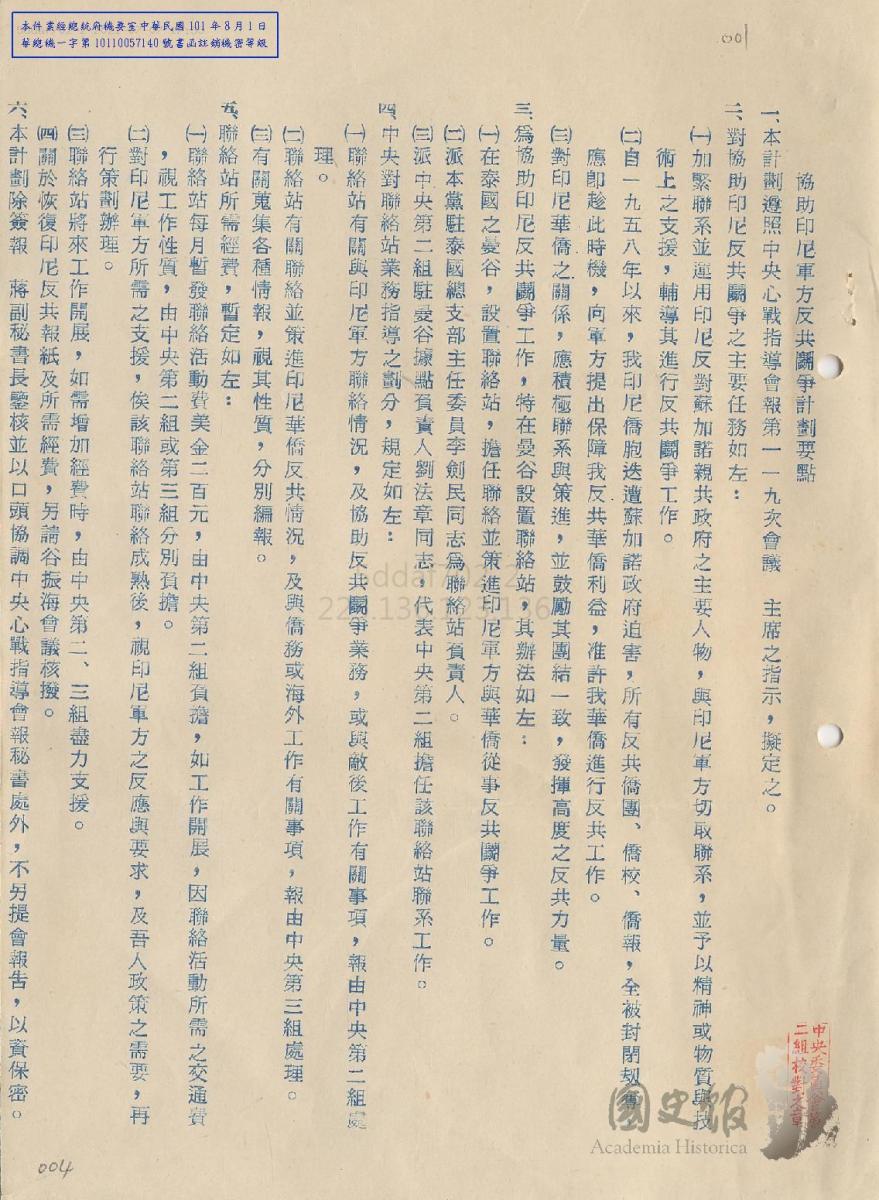 本件業經總統府機要室中華民國101年8月1日
華總機一字第10110057140號書函註銷機密等級
001
協助印尼軍方反共鬪爭計劃要點
一、本計劃遵照中央心戰指導會報第一一九次會議　主席之指示，擬定之。
二、對協助印尼反共鬪爭之主要任務如左：
㈠加緊聯系並運用印尼反對蘇加諾親共政府之主要人物，與印尼軍方切取聯系，並予以精神或物質與技
術上之支援，輔導其進行反共鬪爭工作。
㈡自一九五八年以來，我印尼僑胞迭遭蘇加諾政府迫害，所有反共僑團、僑校、僑報，全被封閉刼奪
應卽趁此時機，向軍方提出保障我反共華僑利益，准許我華僑進行反共工作。
㈢對印尼華僑之關係，應積極聯系與策進，並鼓勵其團結一致，發揮高度之反共力量。
三、爲協助印尼反共鬪爭工作，特在曼谷設置聯絡站，其辦法如左：
㈠在泰國之曼谷，設置聯絡站，擔任聯絡並策進印尼軍方與華僑從事反共鬪爭工作。
㈡派本黨駐泰國總支部主任委員李劍民同志爲聯絡站負責人。
㈢派中央第二組駐曼谷據點負責人劉法章同志，代表中央第二組擔任該聯絡站聯系工作。
四、中央對聯絡站業務指導之劃分，規定如左：
㈠聯絡站有關與印尼軍方聯絡情況，及協助反共鬪爭業務，或與敵後工作有關事項，報由中央第二組處
理。
㈡聯絡站有關聯絡並策進印尼華僑反共情況，及與僑務或海外工作有關事項，報由中央第三組處理。
㈢有關蒐集各種情報，視其性質，分別編報。
五、聯絡站所需經費，暫定如左：
㈠聯絡站每月暫發聯絡活動費美金二百元，由中央第二組負擔，如工作開展，因聯絡活動所需之交通費
，視工作性質，由中央第二組或第三組分別負擔。
㈡對印尼軍方所需之支援，俟該聯絡站聯絡成熟後，視印尼軍方之反應與要求，及吾人政策之需要，再
行策劃辦理。
㈢聯絡站將來工作開展，如需增加經費時，由中央第二、三組盡力支援。
㈣關於恢復印尼反共報紙及所需經費，另請谷振海會議核撥。
六、本計劃除簽報　蔣副秘書長鑒核並以口頭協調中央心戰指導會報秘書處外，不另提會報告，以資保密。
中央委員會第
二組校對文章
國史館
Academia Historica
004